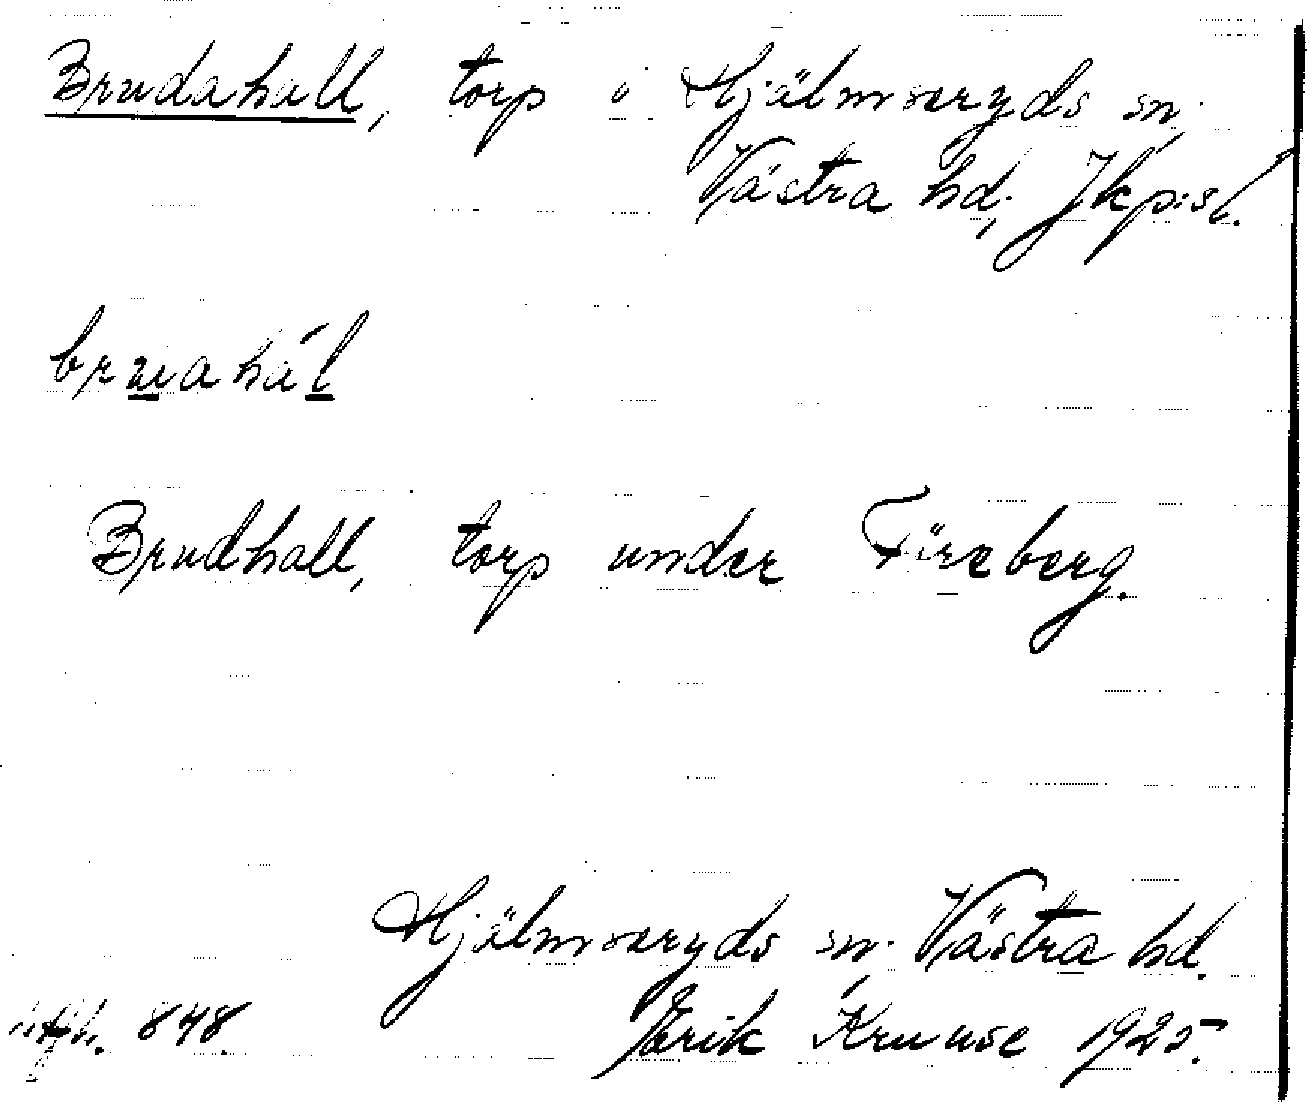 Brudahall, torp i Hjälmseryds sn.
Västra hd; Jkp:s l.
bruahál
Brudhall, torp under Föreberg.
Hjälmseryds sn. Västra hd.
848. Erik Kruuse 1925.